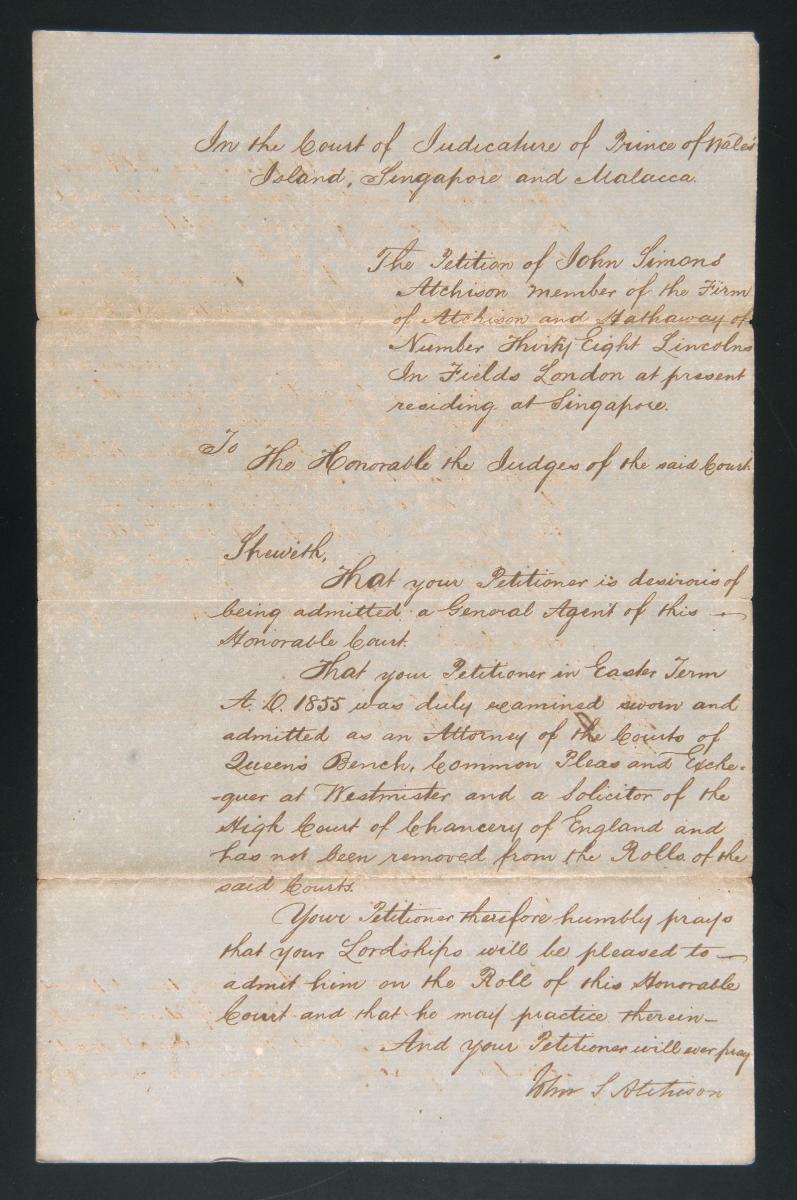 In the Court of Judicature of Prince of Wales'
Island, Singapore and Malacca.
The Petition of John Simons
Atchison member of the Firm
of Atchison and Hathaway of
Number Thirty Eight Lincolns
In Fields London at present
residing at Singapore.
To
The Honorable the Judges of the said Court
Sheweth,
That your Petitioner is desirous of
being admitted a General Agent of this —
Honorable Court.
That your Petitioner in Easter Term
A.D. 1855 was duly examined sworn and
admitted as an Attorney of the Courts of
Queen's Bench, Common Pleas and Exche-
-quer at Westmister and a Solicitor of the
High Court of Chancery of England and
has not been removed from the Rolls of the
said Courts.
Your Petitioner therefore humbly prays
that your Lordships will be pleased to —
admit him on the Roll of this Honorable
Court and that he may practice therein —
And your Petitioner will ever pray
John S Atchison